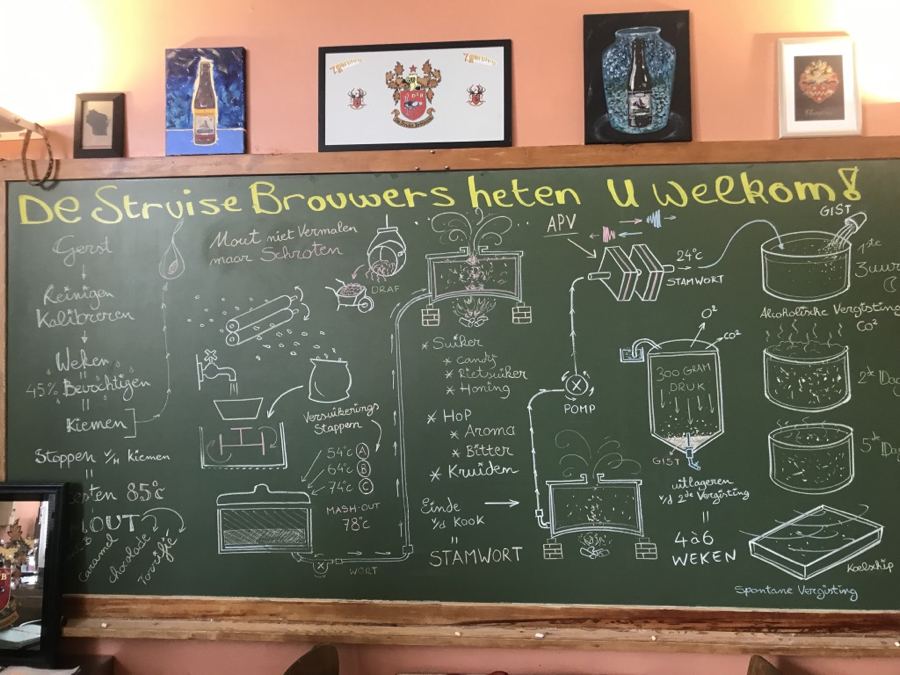 De Struise Brouwers heten U welkom!
Gerst
Reinigen
Kalibreren
Weken
45% Bevochtigen
Kiemen
Stoppen v/h kiemen
esten 85°c
OUT
Caramel
chocolade
Torrifié
Mout niet Vermalen
maar Schroten
DRAF
Versuikerings
Stappen
54°c A
64°c B
74°c C
MASH-OUT
78°c
WORT
* Suiker
* Candy
* Rietsuiker
* Honing
* Hop
* Aroma
* Bitter
* Kruiden
Einde
v/d Kook
STAMWORT
APV
24°c
STAMWORT
POMP
O²
CO²
300 GRAM
DRUK
GIST
uitlageren
v/d 2de Vergisting
4 à 6
WEKEN
GIST
1ste
3uur
Alcoholische Vergisting
CO²
2de Dag
5de Dag
Koelschip
Spontane Vergisting